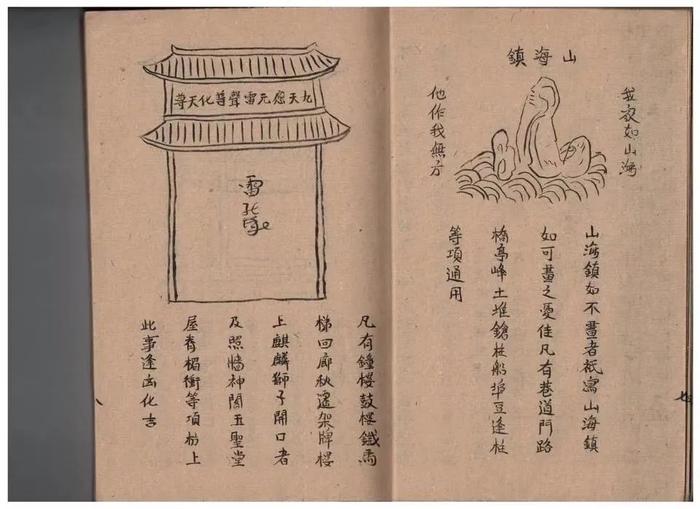 山海鎮
我家如山海
他作我無方
山海鎮如不畫者祇寫山海鎮
如可畫之憂佳凡有巷道門路
橋亭峰土堆鎗柱船埠豆逢柱
等項通用
九天應元雷聲普化天尊
雷
凡有鐘楼鼓楼鐵馬
梯回廊秋遷架牌楼
上麒麟獅子開口者
及照牆神閣五聖堂
屋脊楣衝等項枋上
此事逢凶化吉